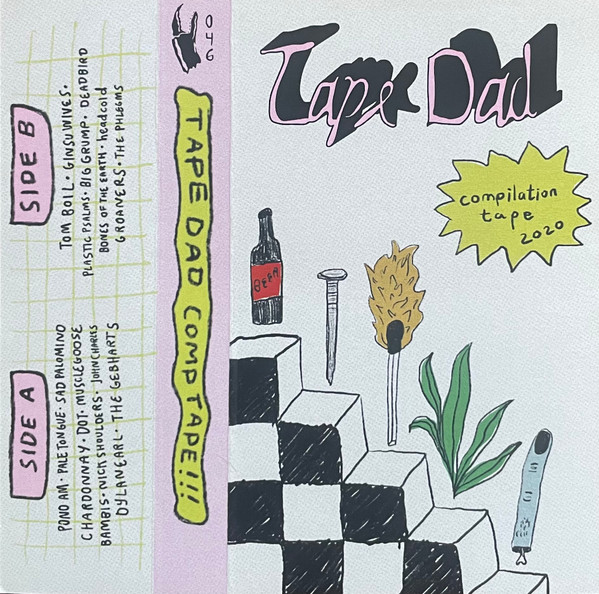 SIDE B
TOM BOIL · GINSU WIVES ·
PLASTIC PSALMS · BIG GRUMP · DEADBIRD
BONES OF THE EARTH · headcold
GROANERS · THE PHLEGMS
SIDE A
POND AM · PALE TONGUE · SAD PALOMINO
CHARDONNAY · DOT · MUSCLEGOOSE
BAMBIS · NICK SHOULDERS · JOHN CHARLES
DYLAN EARL · THE GEBHARTS
046
TAPE DAD COMP TAPE!!!
Tape Dad
compilation
tape
2020
BEER